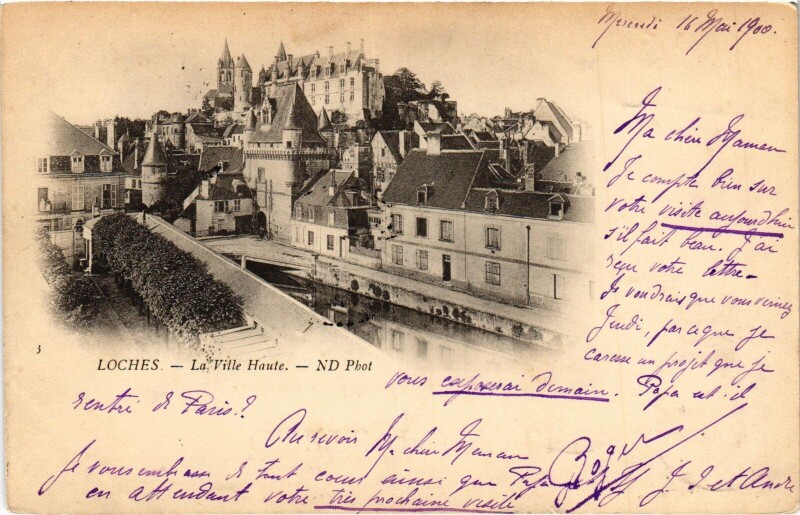 Mercredi 16 Mai 1900.
Ma chère Maman
Je compte bien sur
votre visite aujourd'hui
s'il fait beau. J'ai
reçu votre lettre.
Je voudrais que vous veniez
Jeudi, parceque je
caresse un projet que je
vous exposerai demain. Papa est-il
rentré de Paris?
Au revoir Ma chère Maman
Je vous embrasse de tout coeur ainsi que Papa
en attendant votre très prochaine visite
J et André
3
LOCHES. — La Ville Haute. — ND Phot